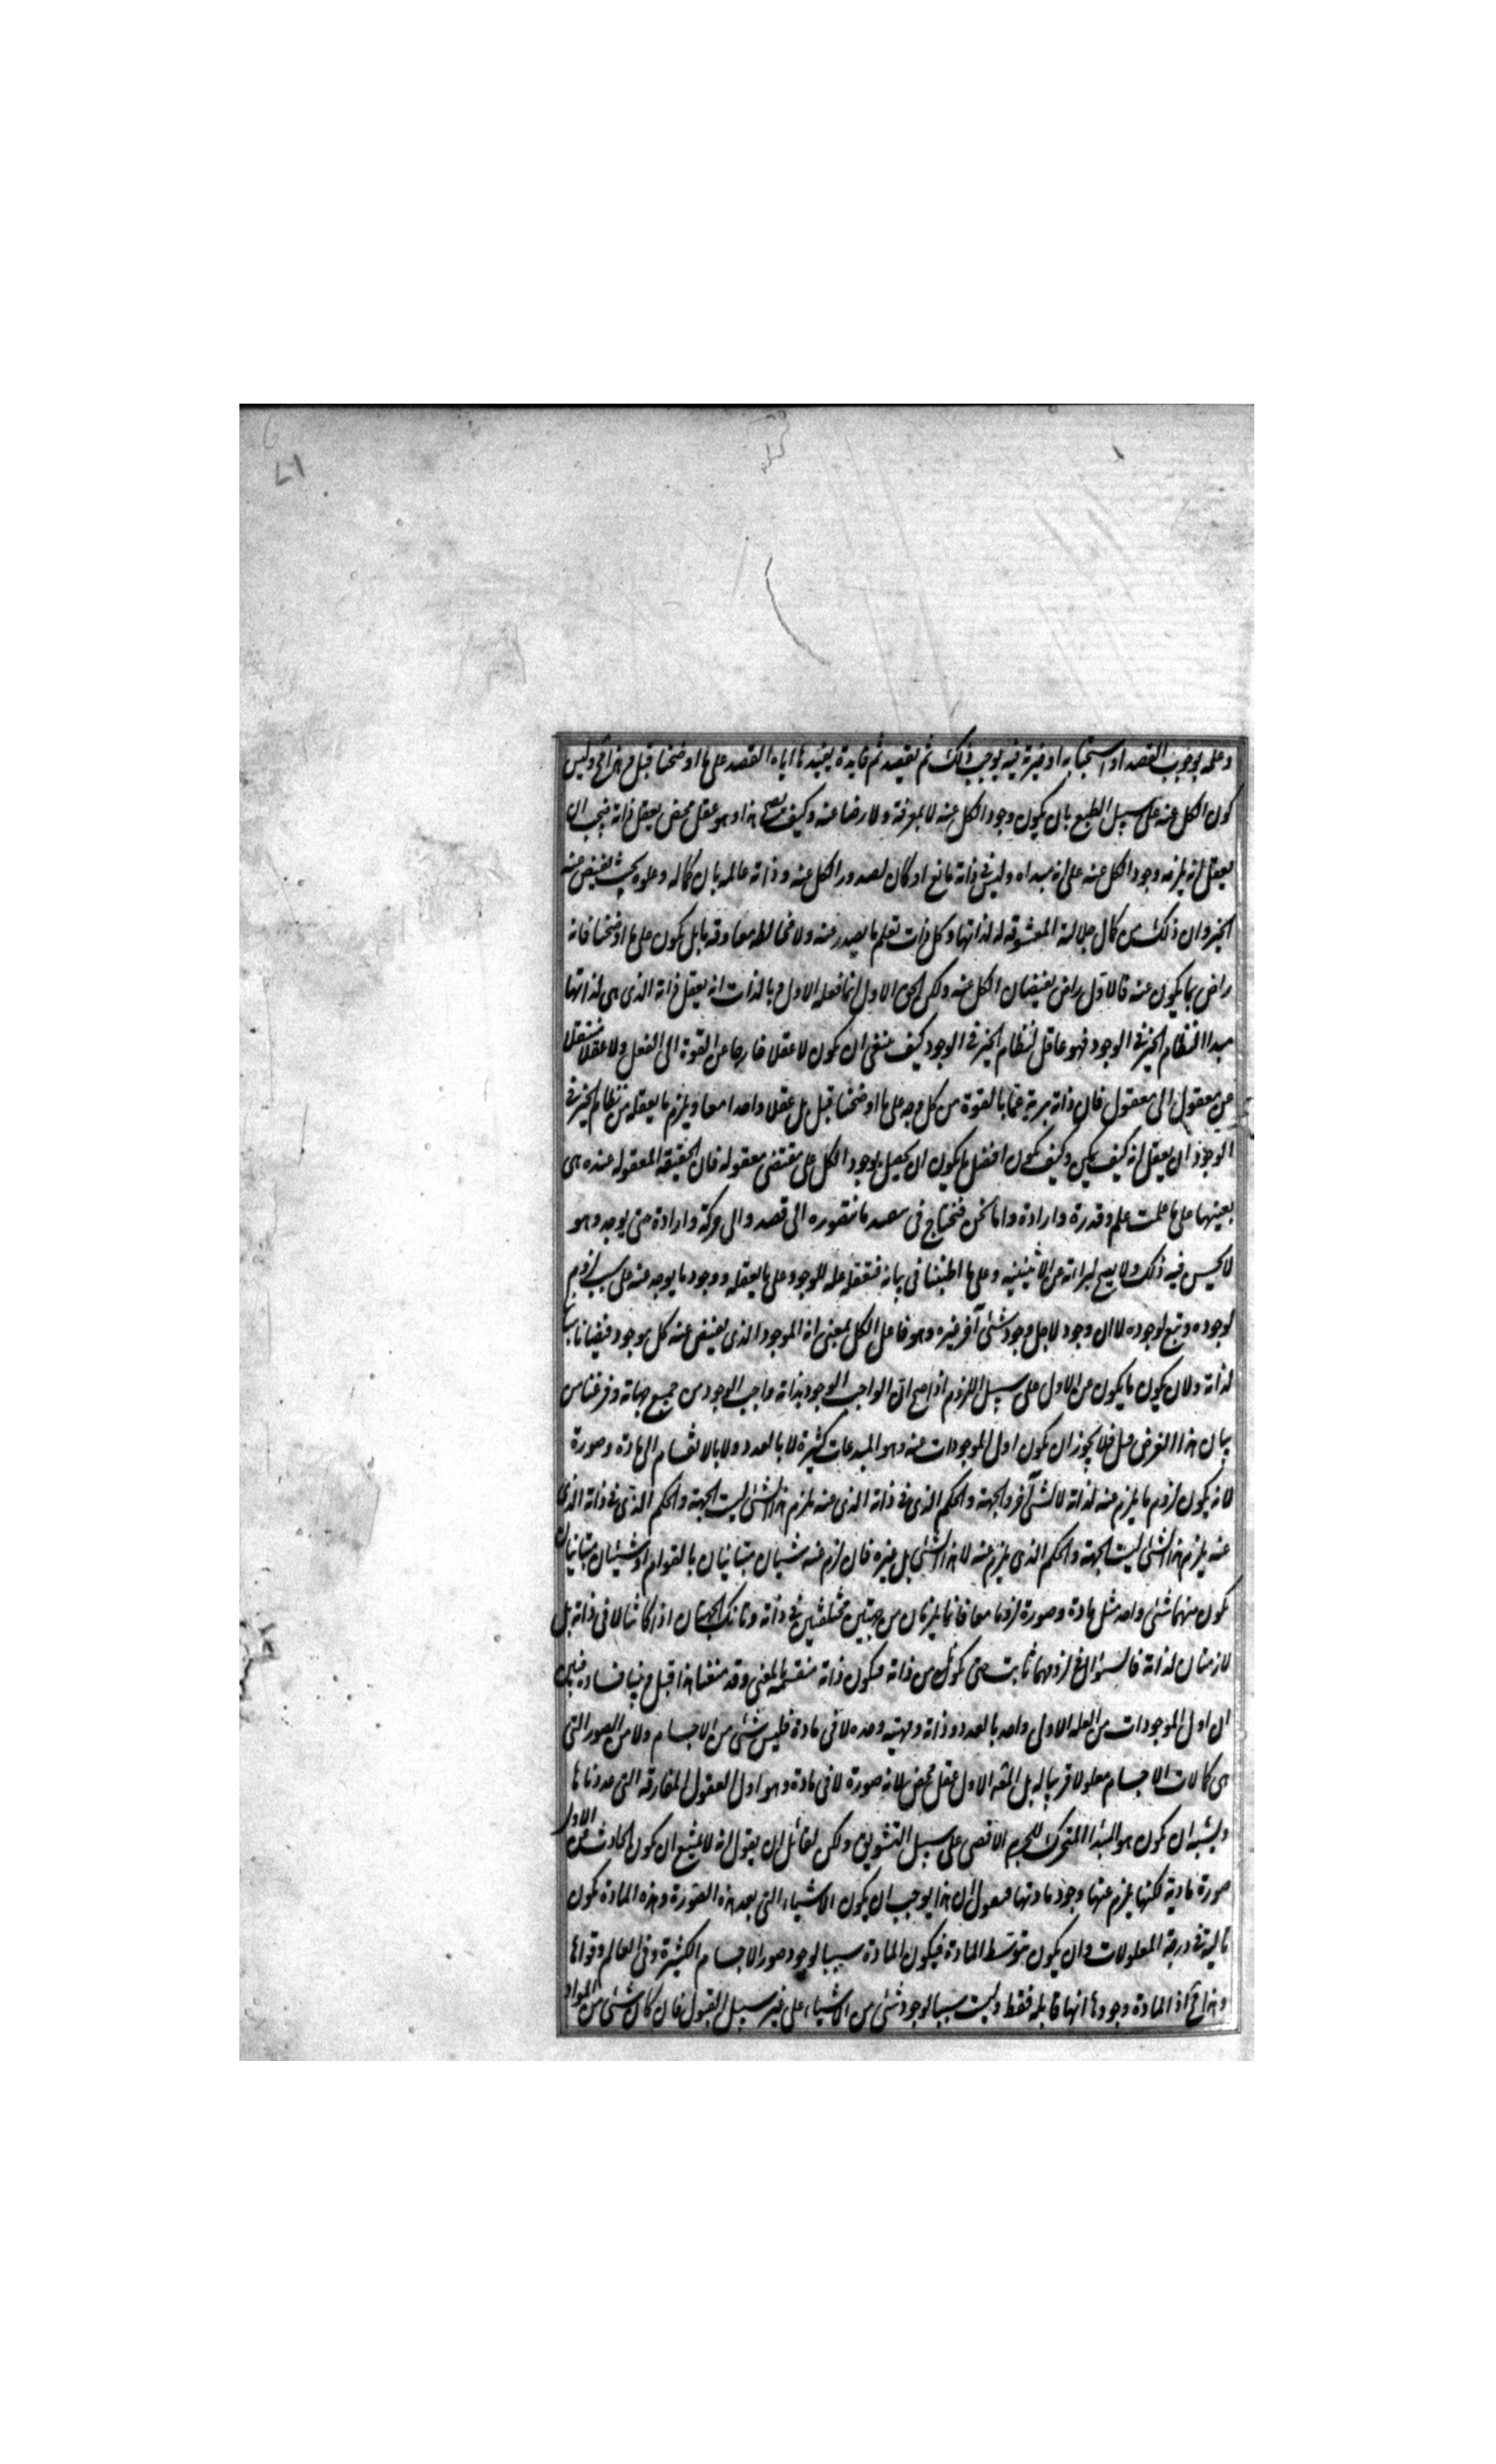 وعلمه بوجوب القصد او استحبابه او خيرية فيه يوجب ذلك ثم لقصد ثم فايدة يفيدها اياه القصد على ما اوضحنا قبل و هذا مح وليس
كون الكل عنه على سبيل الطبع بان يكون وجود الكل عنه لا بمعرفة ولا رضا عنه وكيف يصح هذا وهو عقل محض يعقل ذاته فيجب ان
يعقل انه يلزمه وجود الكل عنه على انه مبداه وليس في ذاته مانع او كان لصدور الكل عنه وذاته عالمه بان كماله وعلوه بحيث يفيض عنه
الخير وان ذلك من كمال جلالته المعشوقه له لذاتها وكل ذات تعلم ما يصدر عنه ولا مخالطه معاوقه ما بل يكون على ما اوضحنا فانه
راض بما يكون عنه فالاول راض بفيضان الكل عنه ولكن الحق الاول انما فعله الاول وبالذات انه يعقل ذاته الذى هى لذاتها
مبدا النظام الخير في الوجود فهو عاقل لنظام الخير في الوجود كيف ينبغى ان يكون لا عقلا خارجا عن القوة الى الفعل ولا عقلا منتقلا
من معقول الى معقول فان ذاته برية عما بالقوة من كل وجه على ما اوضحنا قبل بل عقلا واحدا معا ويلزم ما يعقله من نظام الخير في
الوجود ان يعقل انه كيف يمكن وكيف يكون افضل ما يكون ان يحصل وجود الكل على مقتضى معقوله فان الحقيقة المعقوله عنده هى
بعينها على ما علمت علم وقدرة وارادة واما نحن فنحتاج فى تنفيذ ما نتصوره الى قصد والى حركة وارادة حتى يوجد وهو
لا يحسن فيه ذلك ولا يصح لبراته عن الاثنينيه وعلى ما اطنبنا فى بيانه فتعقله عله للوجود على ما يعقله ووجود ما يوجد عنه على سبيل لزوم
لوجوده وتبع لوجوده لا ان وجوده لاجل وجود شئى آخر غيره وهو فاعل الكل بمعنى انه الموجود الذى يفيض عنه كل موجود فيضانا مباينا
لذاته ولان كون ما يكون عن الاول على سبيل اللزوم اذا صح ان الواجب الوجود بذاته واجب الوجود من جميع جهاته وفرغنا من
بيان هذا الغرض قبل فلا يجوز ان يكون اول الموجودات عنه وهو المبدعات كثيرة لا بالعدد ولا بالانقسام الى مادة وصورة
لانه يكون لزوم ما يلزم عنه لذاته لا لشئ آخر والجهة والحكم الذى في ذاته الذى عنه يلزم هذا الشئى ليست الجهة والحكم الذى في ذاته الذى
عنه يلزم هذا الشئى ليست الجهة والحكم الذى يلزم عنه لا هذا الشئى بل غيره فان لزم عنه شيئان متباينان بالقوام او شيئان متباينان
يكون منهما شئى واحد مثل مادة وصورة لزوما معا فانما يلزمان من جهتين مختلفتين في ذاته وتانك الجهتان اذا كانتا لا فى ذاته بل
لازمتان لذاته فالسؤال في لزومهما ثابت حتى يكون من ذاته فيكون ذاته منقسمه بالمعنى وقد منعنا هذا قبل وبينا فساده فتبين
ان اول الموجودات من العله الاولى واحد بالعدد وذاته ومهيته وحده لا فى مادة فليس شئى من الاجسام ولا من الصور التى
هى كمالات الاجسام معلولا قريبا له بل المعلول الاول عقل محض لانه صورة لا فى مادة وهو اول العقول المفارقه التى عددناها
ويشبه ان يكون هو المبدا المتحرك للجرم الاقصى على سبيل التشويق ولكن لقائل ان يقول انه لا يمتنع ان يكون الحادث عن الاول
صورة مادية لكنها يلزم عنها وجود مادتها فنقول ان هذا يوجب ان يكون الاشياء التى بعد هذه الصورة وهذه المادة يكون
تالية في درجة المعلولات وان يكون بتوسط المادة فيكون المادة سببا لوجود صور الاجسام الكثيرة فى العالم وقواها
وهذا مح اذ المادة وجودها انها قابله فقط وليست سببا لوجود شئى من الاشياء على غير سبيل القبول فان كان شئى من المواد